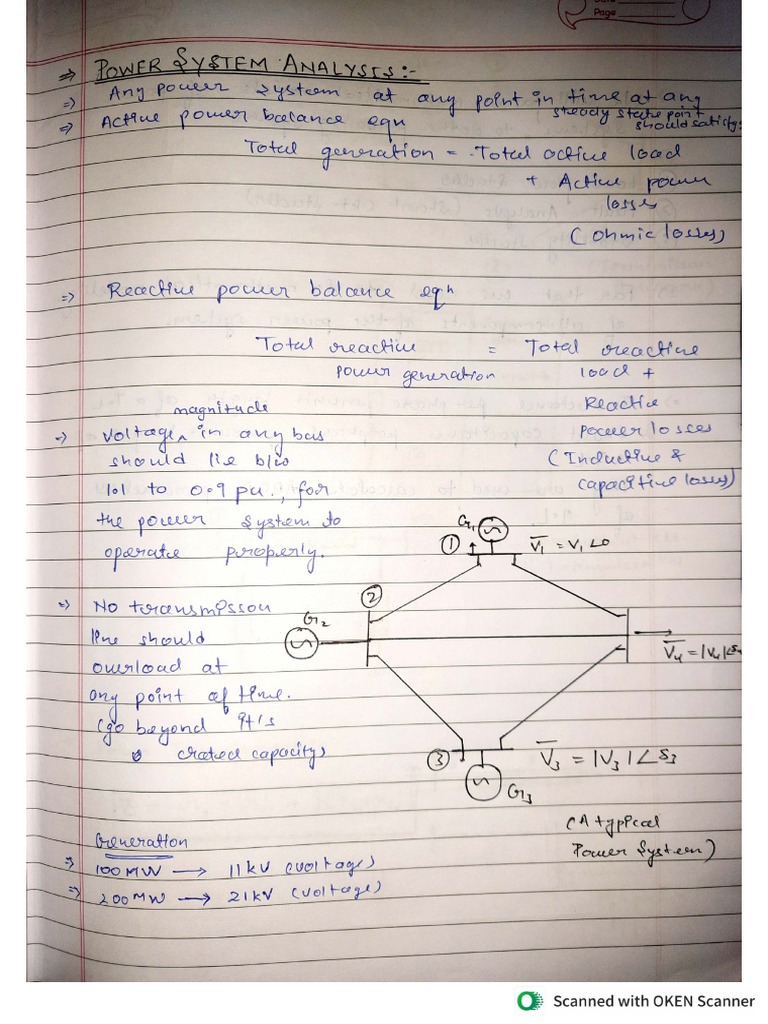 Page
⇒ POWER SYSTEM ANALYSIS:-
⇒ Any power system at any point in time at any
steady state point
should satisfy:
⇒ Active power balance eqn
Total generation = Total active load
+ Active power
losses
(Ohmic losses)
⇒ Reactive power balance eqn
Total reactive = Total reactive
power generation load +
Reactive
power losses
(Inductive &
capacitive losses)
⇒ Voltage ^ magnitude in any bus
should lie b/w
1.1 to 0.9 pu., for
the power system to
operate properly.
G1
① V1 = V1∠0
②
G2
V4 = |V4|∠δ4
⇒ No transmisson
line should
overload at
any point of time.
(go beyond it's
rated capacity)
③ V3 = |V3|∠δ3
G3
(A typical
Power System)
Generation
⇒ 100MW → 11kV (voltage)
⇒ 200MW → 21kV (voltage)
Scanned with OKEN Scanner